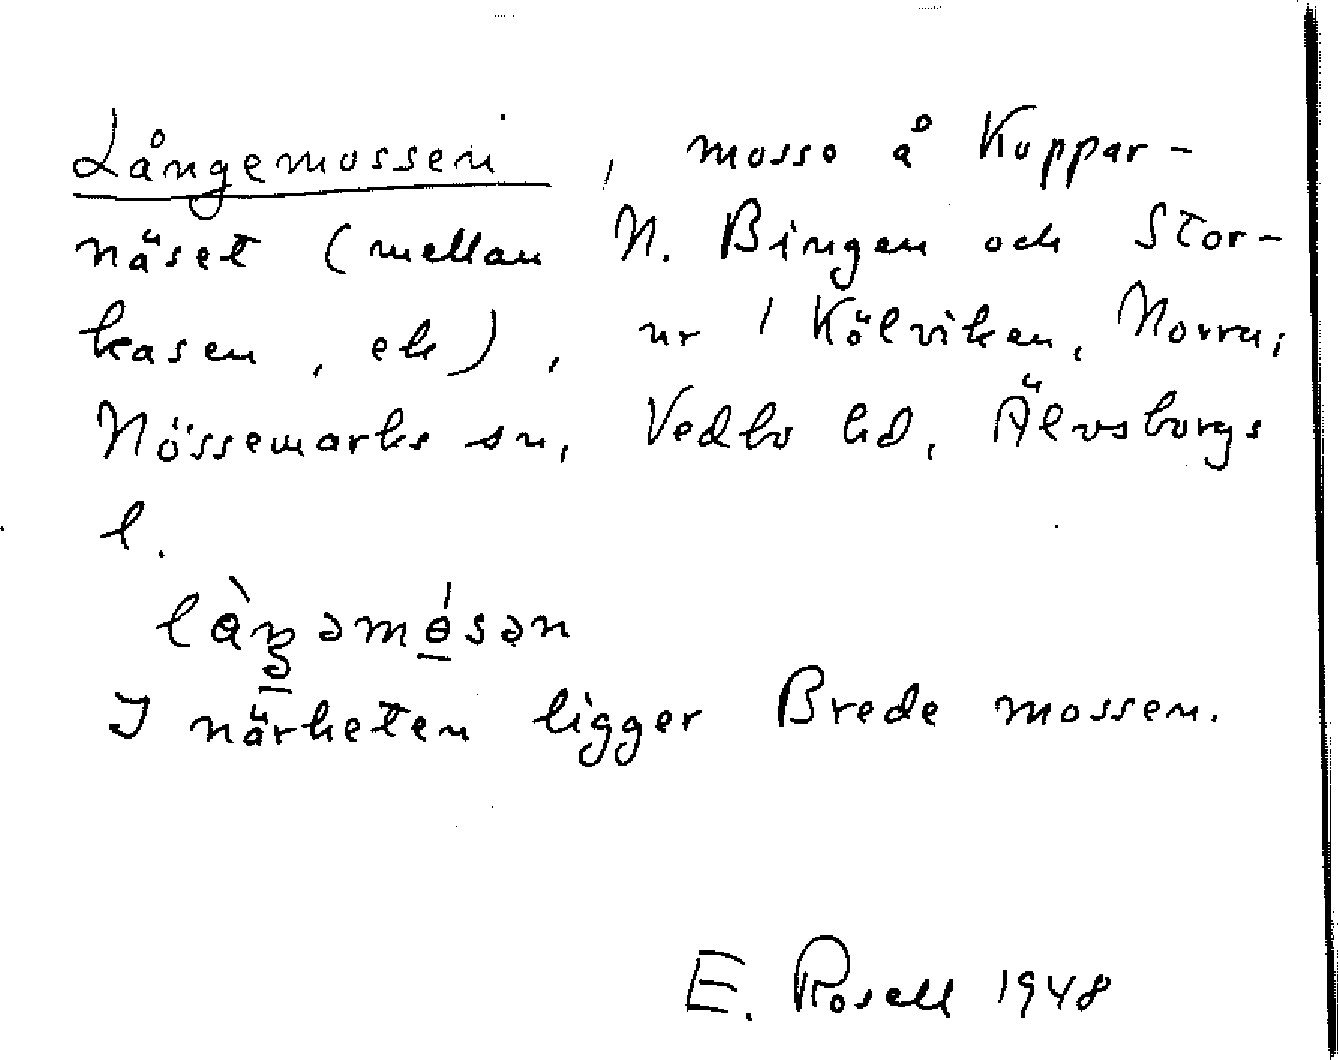 Långemossen, mosse å Koppar-
näset (mellan N. Bingen och Stor-
kasen, ek), nr 1 Kölviken, Norra;
Nössemarks sn, Vedbo hd, Älvsborgs
l.
I närheten ligger Brede mossen.
E. Rosell 1948